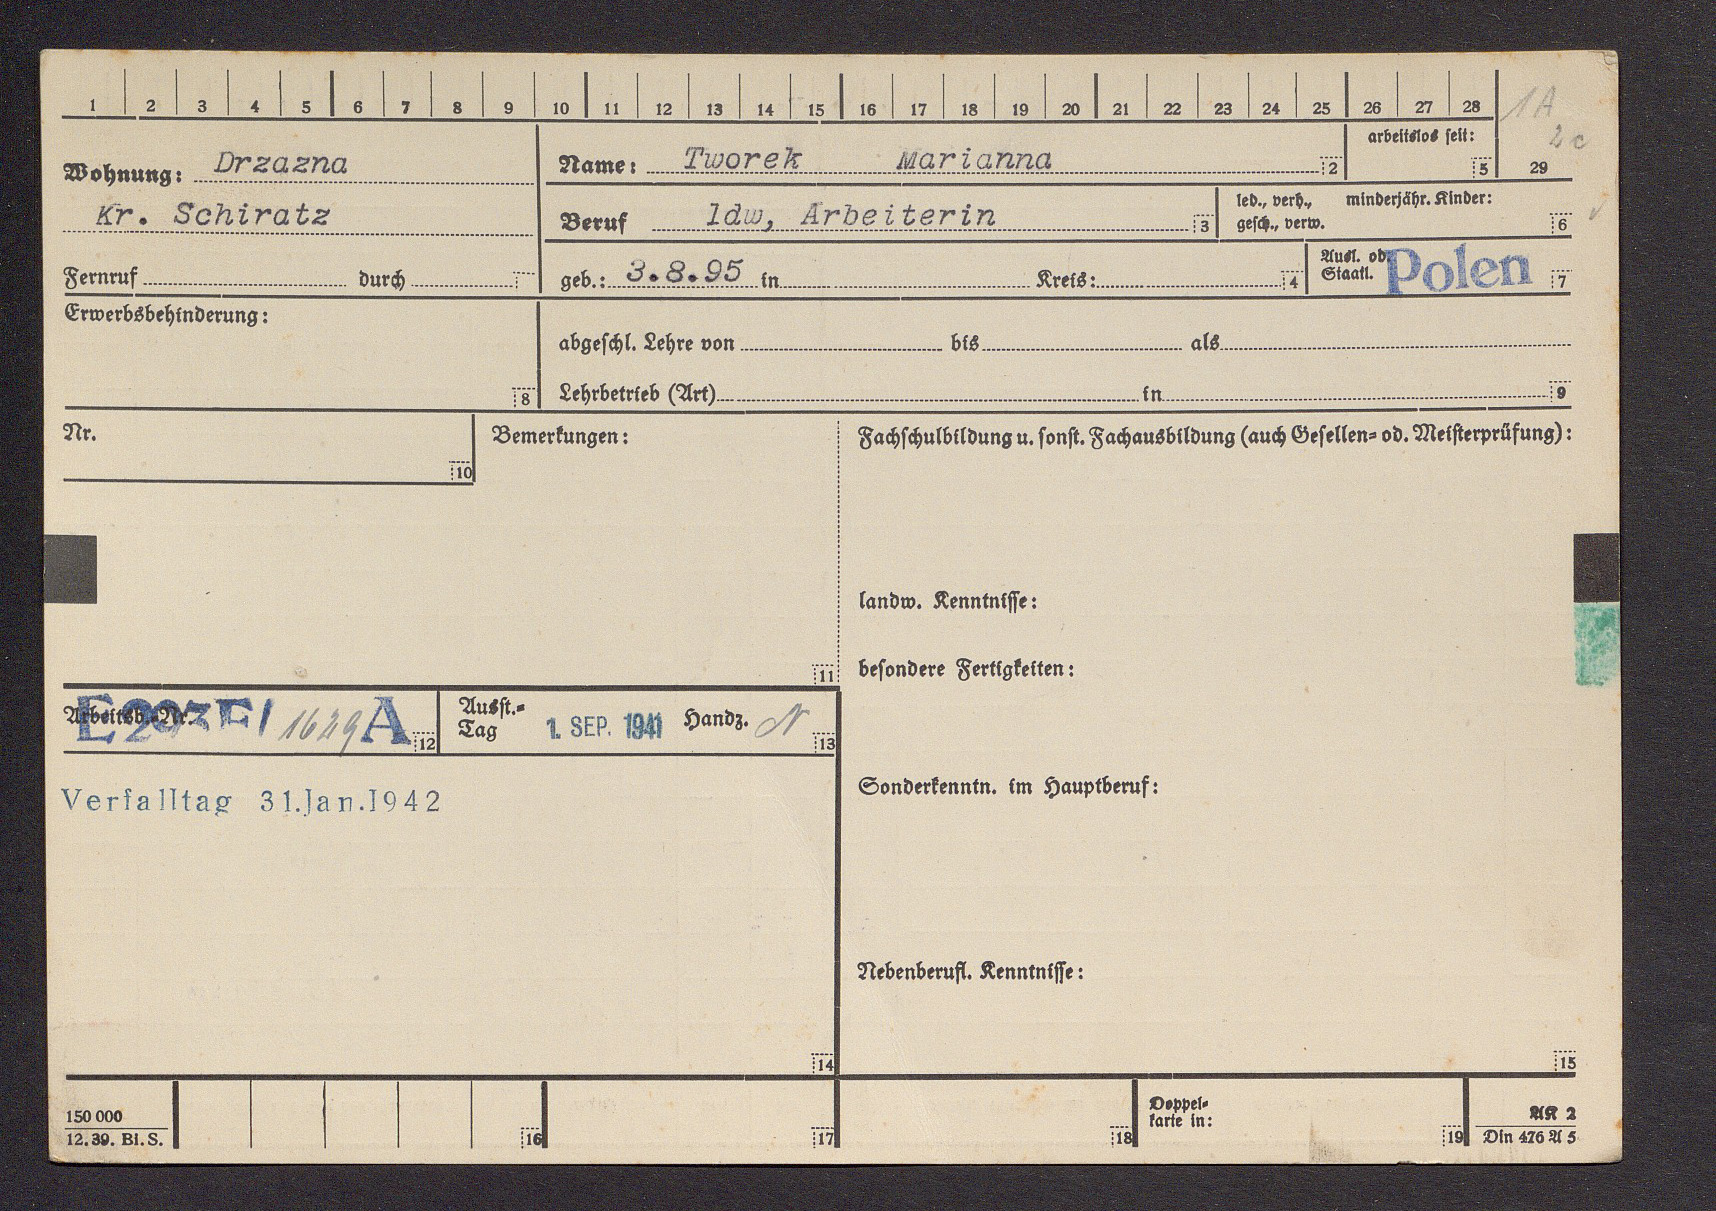 1 2 3 4 5 6 7 8 9 10 11 12 13 14 15 16 17 18 19 20 21 22 23 24 25 26 27 28 29
1A
2c
Wohnung: Drzazna
Kr. Schiratz
Name: Tworek Marianna 2
arbeitslos seit: 5
Beruf ldw, Arbeiterin 3
led., verh., minderjähr. Kinder:
gesch., verw. 6
Fernruf durch
geb.: 3.8.95 in Kreis: 4
Ausl. od.
Staatl. Polen 7
Erwerbsbehinderung:
8
abgeschl. Lehre von bis als
Lehrbetrieb (Art) in 9
Nr.
10
Bemerkungen:
11
Fachschulbildung u. sonst. Fachausbildung (auch Gesellen= od. Meisterprüfung):
landw. Kenntnisse:
besondere Fertigkeiten:
Arbeitsb.-Nr. E 203E/1629 A 12
Ausst.=
Tag 1. SEP. 1941 Handz. N 13
Verfalltag 31.Jan.1942
14
Sonderkenntn. im Hauptberuf:
Nebenberufl. Kenntnisse:
15
150 000
12.39. Bi.S.
16
17
18
Doppel=
karte in:
19
AK 2
Din 476 A 5